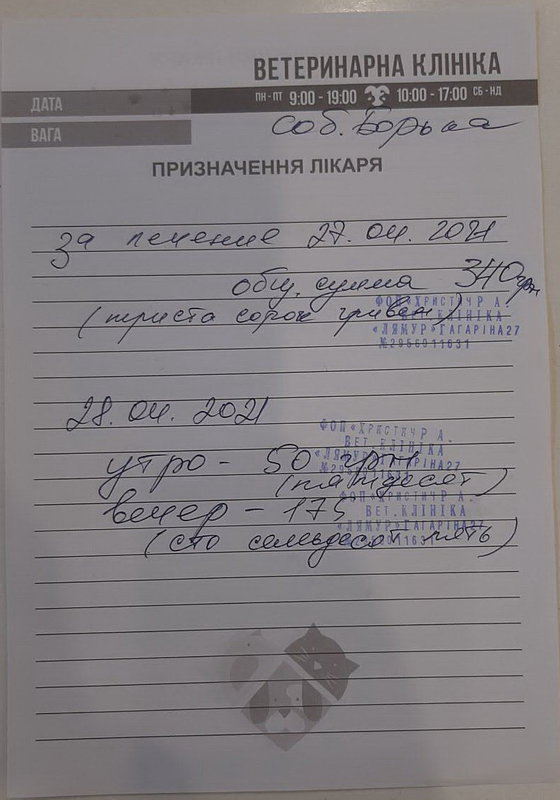 ВЕТЕРИНАРНА КЛІНІКА
ДАТА
ПН - ПТ 9:00 - 19:00 10:00 - 17:00 СБ - НД
ВАГА
соб. Борька
ПРИЗНАЧЕННЯ ЛІКАРЯ
За лечение 27.04.2021
общ. сумма 340 грн
(триста сорок гривен)
ФОП «ХРИСТИЧ Р А.
ВЕТ.КЛІНІКА
«ЛЯМУР»ГАГАРІНА27
№2956011631
28.04.2021
ФОП «ХРИСТИЧ Р А.
ВЕТ.КЛІНІКА
«ЛЯМУР»ГАГАРІНА27
утро - 50 грн
(пятьдесят)
ФОП «ХРИСТИЧ Р А.
ВЕТ.КЛІНІКА
«ЛЯМУР»ГАГАРІНА27
вечер - 175
(сто семьдесят пять)